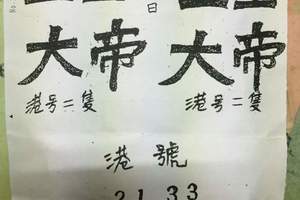 No.
日
大帝 大帝
港号二隻 港号二隻
港號
21 33